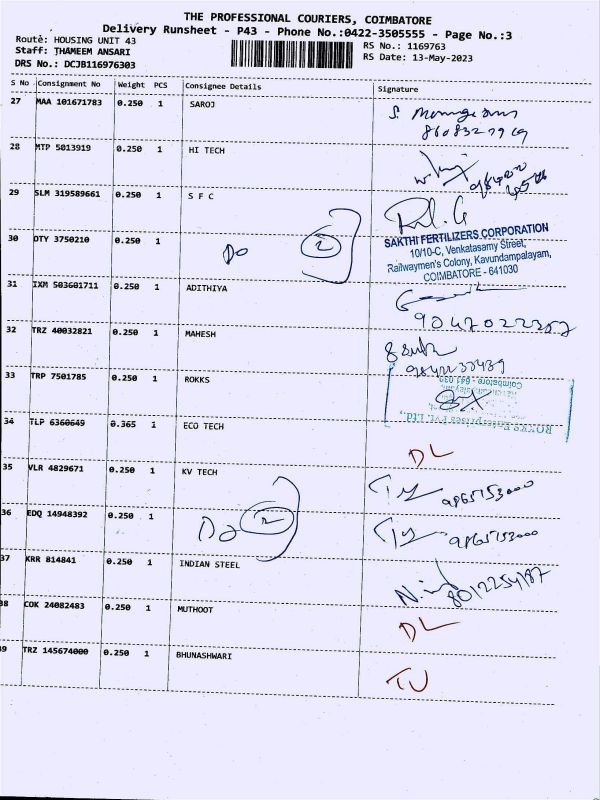 THE PROFESSIONAL COURIERS, COIMBATORE
Delivery Runsheet - P43 - Phone No.:0422-3505555 - Page No.:3
Route: HOUSING UNIT 43 RS No.: 1169763
Staff: THAMEEM ANSARI RS Date: 13-May-2023
DRS No.: DCJB116976303
S No Consignment No Weight PCS Consignee Details Signature
27 MAA 101671783 0.250 1 SAROJ
28 MTP 5013919 0.250 1 HI TECH
29 SLM 319589661 0.250 1 S F C
SAKTHI FERTILIZERS CORPORATION
10/10-C, Venkatasamy Street,
Railwaymen's Colony, Kavundampalayam,
COIMBATORE - 641030
30 DTY 3750210 0.250 1 Do 2
31 IXM 503601711 0.250 1 ADITHIYA
32 TRZ 40032821 0.250 1 MAHESH
33 TRP 7501785 0.250 1 ROKKS
ROKKS Enterprises Pvt. Ltd.,
Coimbatore - 641 030
34 TLP 6360649 0.365 1 ECO TECH DL
35 VLR 4829671 0.250 1 KV TECH 9865153000
36 EDQ 14948392 0.250 1 Do 2 9865153000
37 KRR 814841 0.250 1 INDIAN STEEL
38 COK 24082483 0.250 1 MUTHOOT DL
39 TRZ 145674000 0.250 1 BHUNASHWARI